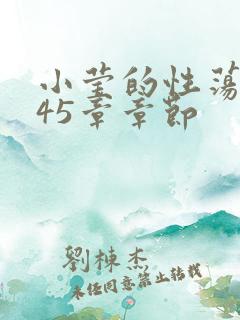 小莹的性荡
45章章節
劉棟杰
未经同意禁止转载